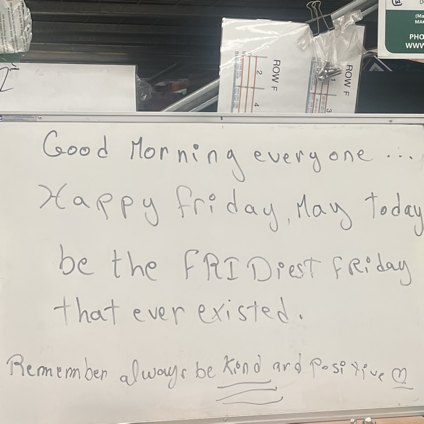 ROW F
ROW F
2
4
3
PHO
WWW
Good Morning everyone ...
Happy friday, May today
be the FRIDiesT FRiday
that ever existed.
Remember always be Kind and Positive ♡